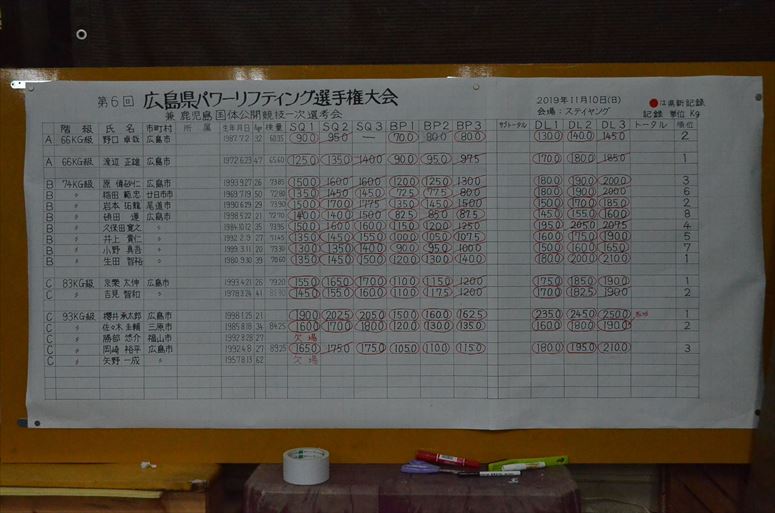 第6回 広島県パワーリフティング選手権大会
兼 鹿児島国体公開競技一次選考会
2019年11月10日(日)
会場:スティヤング
●は県新記録
記録 単位 Kg
階級 氏名 市町村 所属 生年月日 Age 検量 SQ1 SQ2 SQ3 BP1 BP2 BP3 サブトータル DL1 DL2 DL3 トータル 順位
A 66KG級 野口 卓哉 広島市 1987.7.2 32 90.0 95.0 ― 70.0 80.0 80.0 130.0 140.0 145.0 2
A 66KG級 渡辺 正雄 広島市 1972.6.23 47 65.60 125.0 135.0 140.0 90.0 95.0 97.5 170.0 180.0 185.0 1
B 74KG級 原 広島市 1993.9.27 26 73.85 150.0 160.0 160.0 120.0 125.0 130.0 180.0 190.0 200.0 3
B 〃 稲田 範忠 廿日市市 1969.7.19 50 72.80 135.0 145.0 145.0 72.5 77.5 80.0 180.0 190.0 200.0 6
B 〃 岩本 拓龍 尾道市 1990.6.19 29 73.90 150.0 170.0 177.5 135.0 145.0 150.0 150.0 170.0 185.0 2
B 〃 頓田 運 広島市 1998.5.22 21 72.70 140.0 140.0 150.0 82.5 85.0 87.5 145.0 155.0 160.0 8
B 〃 久保田 寛之 〃 1984.10.12 35 73.95 150.0 160.0 160.0 110.0 120.0 125.0 195.0 205.0 207.5 4
B 〃 井上 貴仁 〃 1992.2.19 27 71.45 135.0 145.0 155.0 100.0 105.0 107.5 160.0 175.0 190.0 5
B 〃 小野 真吾 〃 1999.3.11 20 73.30 130.0 135.0 140.0 90.0 95.0 100.0 150.0 160.0 165.0 7
B 〃 生田 智裕 〃 1980.9.30 39 70.60 135.0 145.0 150.0 120.0 130.0 140.0 180.0 200.0 210.0 1
C 83KG級 太伸 広島市 1993.4.21 26 79.20 155.0 165.0 170.0 110.0 115.0 120.0 175.0 185.0 190.0 1
C 〃 吉見 智和 〃 1978.3.24 41 145.0 155.0 160.0 110.0 117.5 120.0 170.0 182.5 190.0 2
C 93KG級 櫻井 承太郎 広島市 1998.1.25 21 190.0 202.5 205.0 150.0 160.0 162.5 235.0 245.0 250.0 1
C 〃 佐々木 圭輔 三原市 1985.8.18 34 84.25 160.0 170.0 180.0 120.0 130.0 135.0 160.0 180.0 190.0 2
C 〃 勝部 悠介 福山市 1992.8.28 27 欠場
C 〃 岡崎 裕平 広島市 1992.4.8 27 89.25 165.0 175.0 175.0 105.0 110.0 115.0 180.0 195.0 210.0 3
C 〃 矢野 一成 〃 1957.8.13 62 欠場